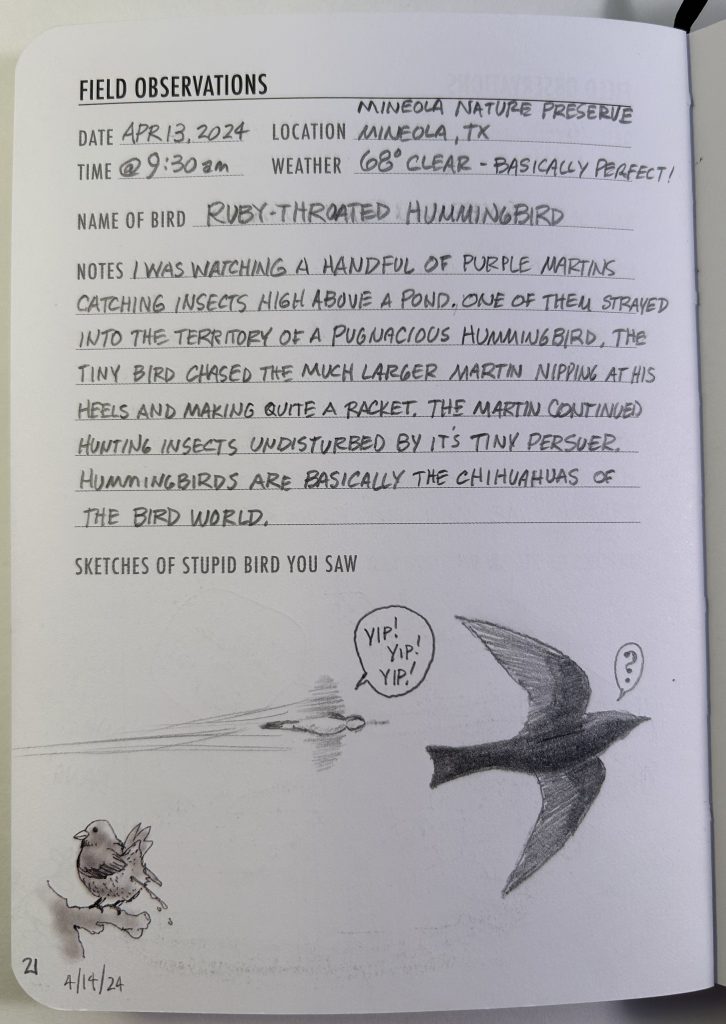 FIELD OBSERVATIONS
MINEOLA NATURE PRESERVE
DATE APR 13, 2024 LOCATION MINEOLA, TX
TIME @ 9:30am WEATHER 68° CLEAR - BASICALLY PERFECT!
NAME OF BIRD RUBY-THROATED HUMMINGBIRD
NOTES I WAS WATCHING A HANDFUL OF PURPLE MARTINS
CATCHING INSECTS HIGH ABOVE A POND. ONE OF THEM STRAYED
INTO THE TERRITORY OF A PUGNACIOUS HUMMINGBIRD. THE
TINY BIRD CHASED THE MUCH LARGER MARTIN NIPPING AT HIS
HEELS AND MAKING QUITE A RACKET. THE MARTIN CONTINUED
HUNTING INSECTS UNDISTURBED BY IT'S TINY PERSUER.
HUMMINGBIRDS ARE BASICALLY THE CHIHUAHUAS OF
THE BIRD WORLD.
SKETCHES OF STUPID BIRD YOU SAW
YIP!
YIP!
YIP!
?
21
4/14/24